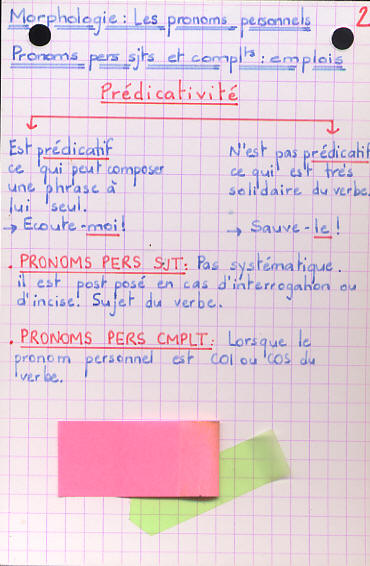 Morphologie : Les pronoms personnels
2
Pronoms pers sjts et complts : emplois
Prédicativité
Est prédicatif
ce qui peut composer
une phrase à
lui seul.
→ Ecoute-moi !
N'est pas prédicatif
ce qui est très
solidaire du verbe.
→ Sauve-le !
. PRONOMS PERS SJT : Pas systématique.
il est postposé en cas d'interrogation ou
d'incise. Sujet du verbe.
. PRONOMS PERS CMPLT : Lorsque le
pronom personnel est COI ou COS du
verbe.